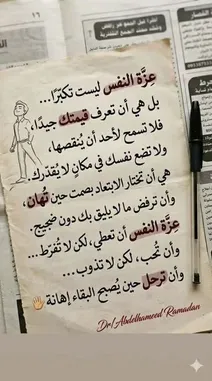 عِزَّة النفس ليست تكبّرًا...
بل هي أن تعرف قيمتك جيدًا،
فلا تسمح لأحد أن يُنقصها،
ولا تضع نفسك في مكانٍ لا يُقدّرك
هي أن تختار الابتعاد بصمت حين تُهان،
وأن ترفض ما لا يليق بك دون ضجيج.
عِزَّة النفس أن تعطي، لكن لا تُفرّط...
وأن تُحب، لكن لا تذوب...
وأن ترحل حين يُصبح البقاء إهانة
Dr/Abdelhameed Ramadan